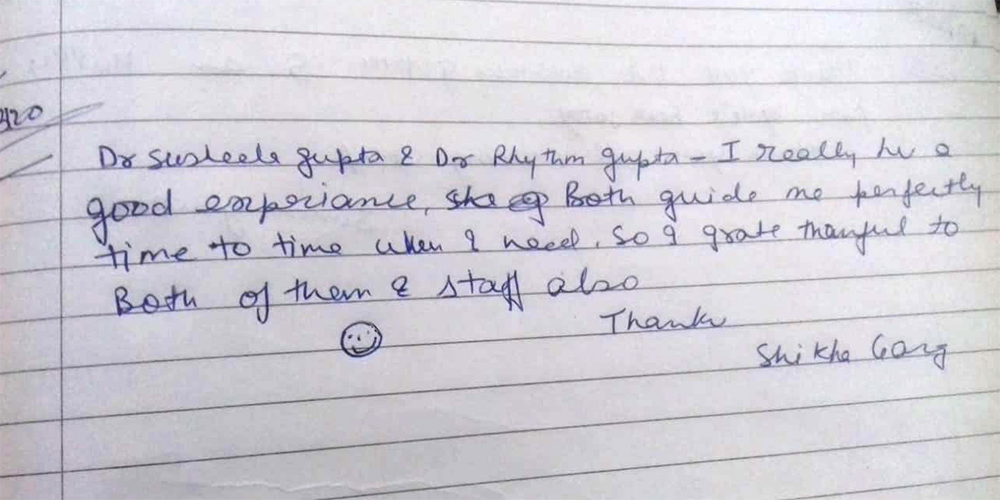 420
Dr Susheela gupta & Dr Rhythm gupta - I really hv a
good experiance, she Both guide me perfectly
time to time when I need. So I grate thanful to
Both of them & staff also
Thanks
Shikha Garg